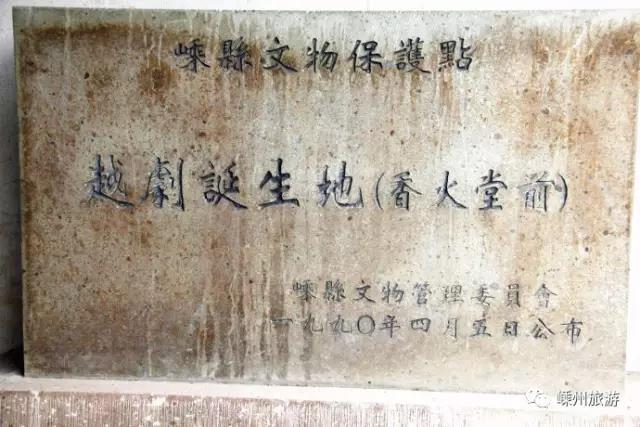 嵊縣文物保護點
越劇誕生地(香火堂前)
嵊縣文物管理委員會
一九九〇年四月五日公布
嵊州旅游